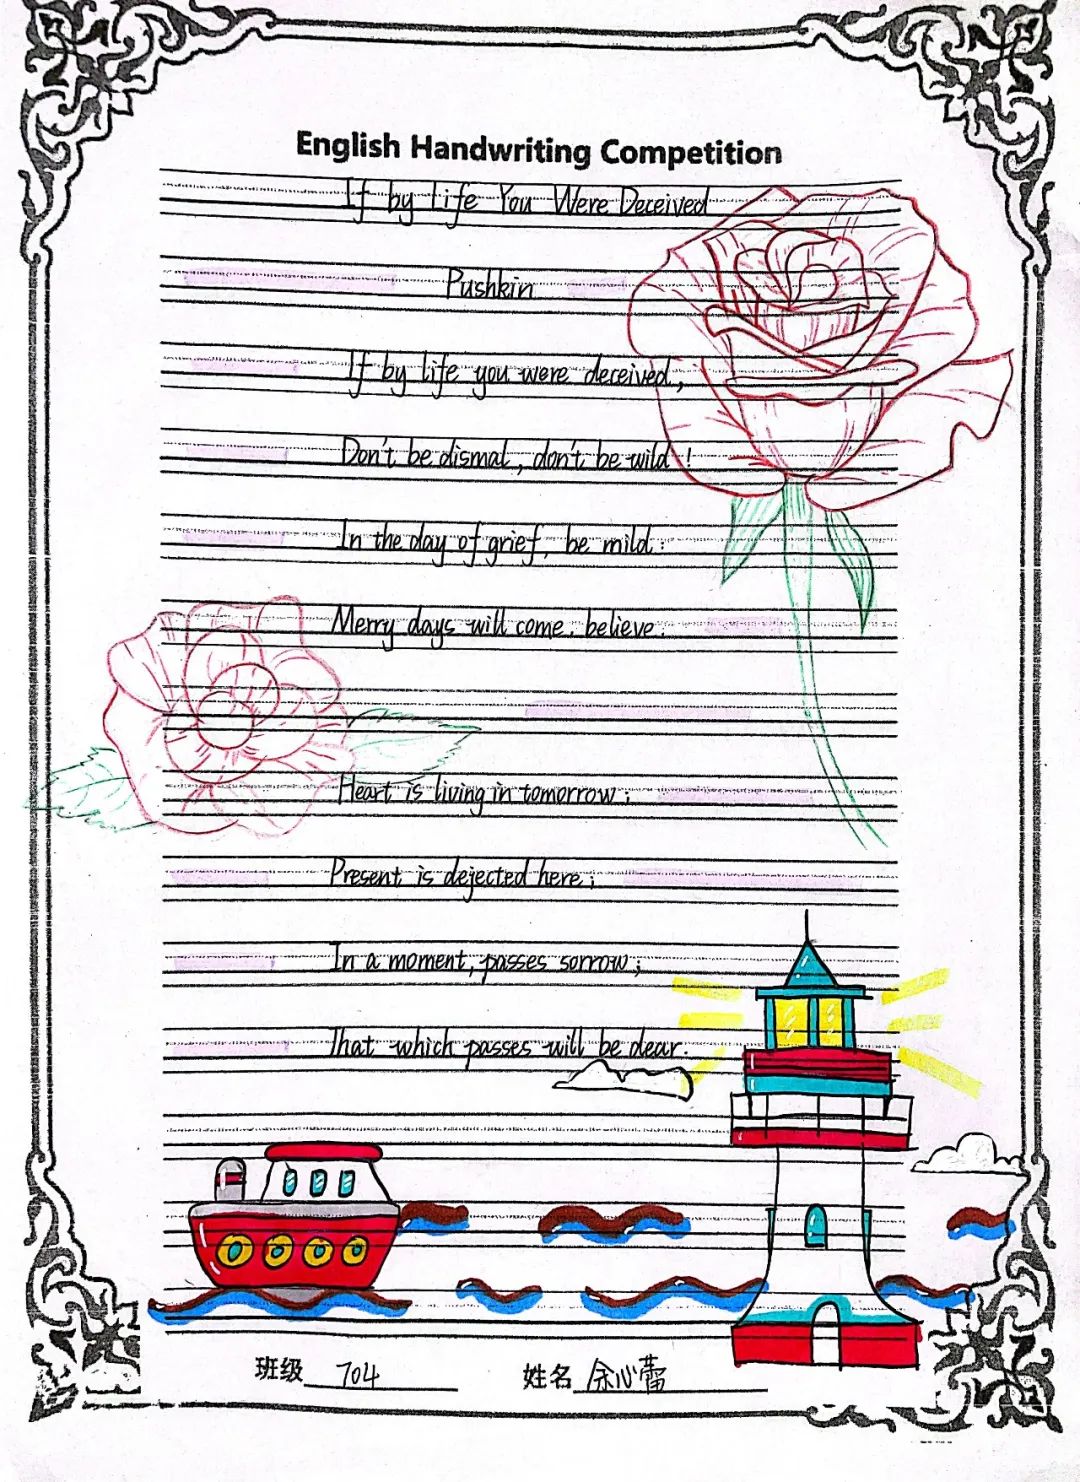 English Handwriting Competition
If by life You Were Deceived
Pushkin
If by life you were deceived,
Don't be dismal, don't be wild!
In the day of grief, be mild:
Merry days will come, believe.
Heart is living in tomorrow;
Present is dejected here;
In a moment, passes sorrow;
That which passes will be dear.
班级 704 姓名 余心蕾